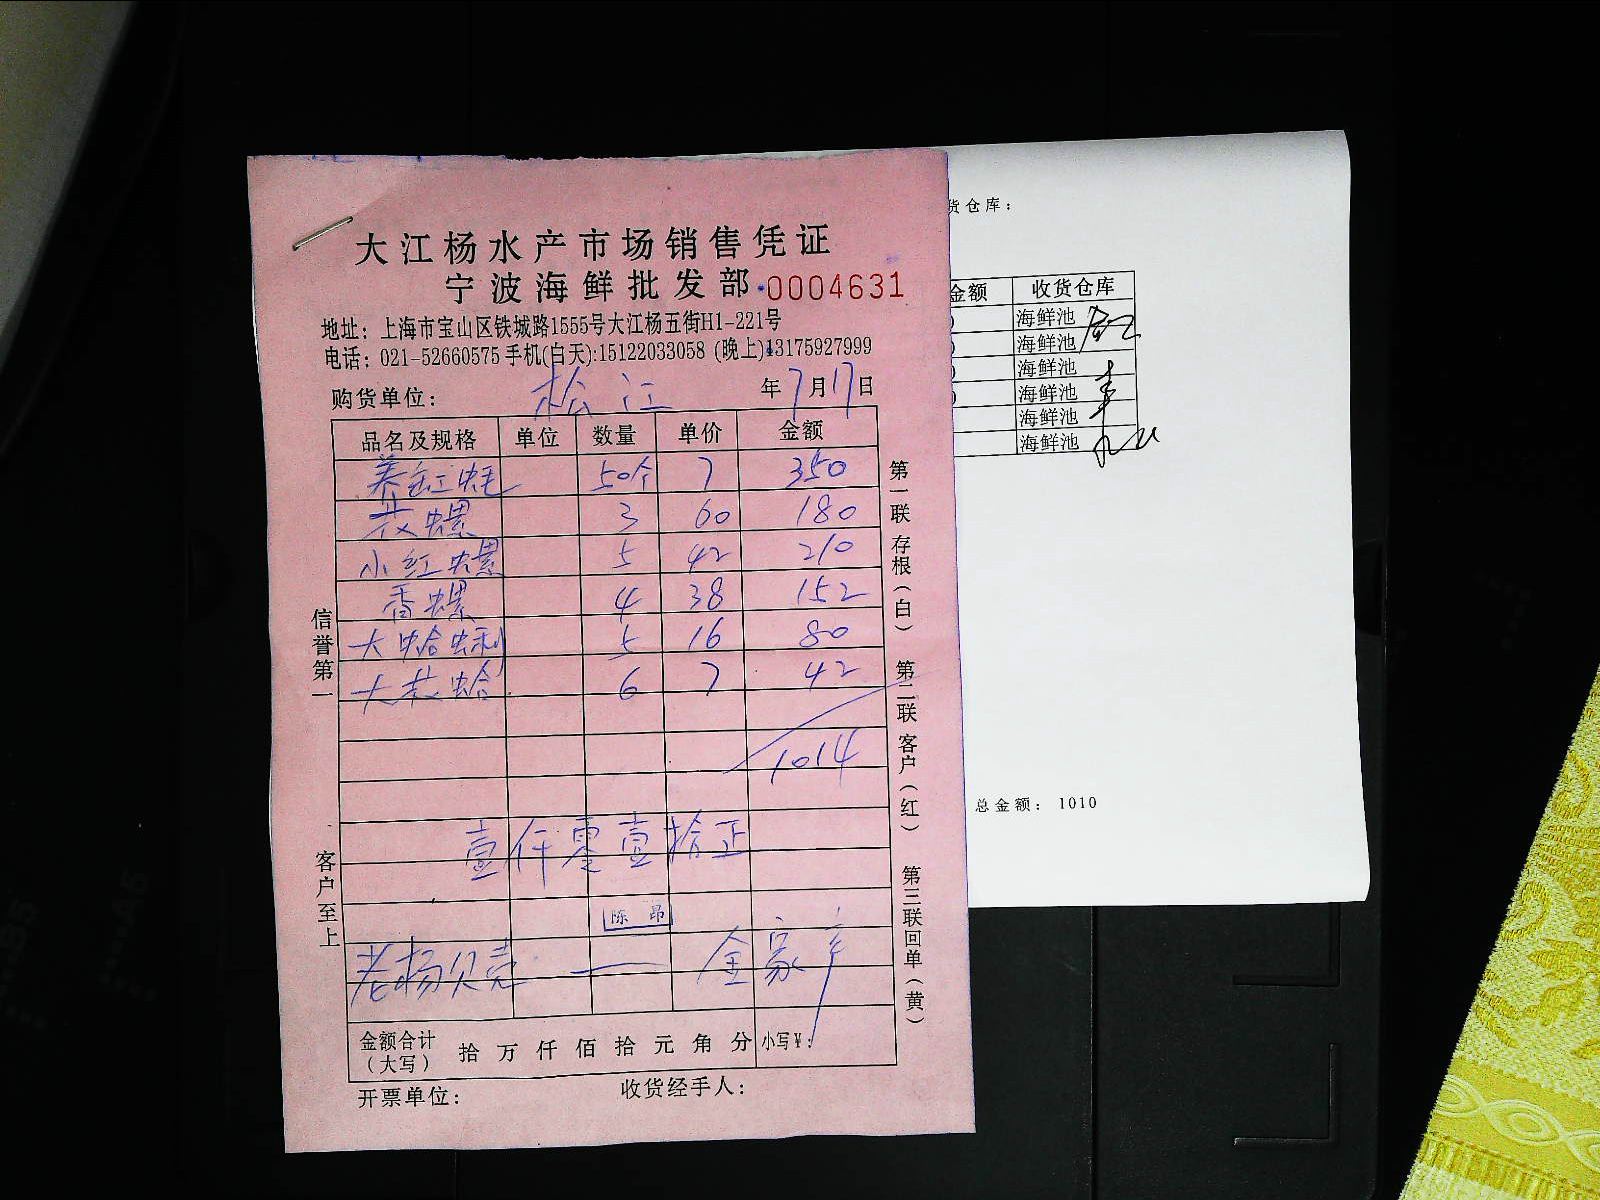 大江杨水产市场销售凭证
宁波海鲜批发部 0004631
地址：上海市宝山区铁城路1555号大江杨五街H1-221号
电话：021-52660575 手机(白天):15122033058 (晚上)13175927999
购货单位： 松江 年7月17日
品名及规格 单位 数量 单价 金额
养缸蚝 50个 7 350
花螺 3 60 180
小红螺 5 42 210
香螺 4 38 152
大蛤蜊 5 16 80
大花蛤 6 7 42
1014
壹仟零壹拾正
陈昂
老杨贝壳 — 全家
金额合计（大写） 拾 万 仟 佰 拾 元 角 分 小写￥：
开票单位： 收货经手人：
信誉第一
客户至上
第一联存根（白）
第二联客户（红）
第三联回单（黄）
货仓库：
金额 收货仓库
海鲜池
海鲜池
海鲜池
海鲜池
海鲜池
海鲜池
总金额： 1010